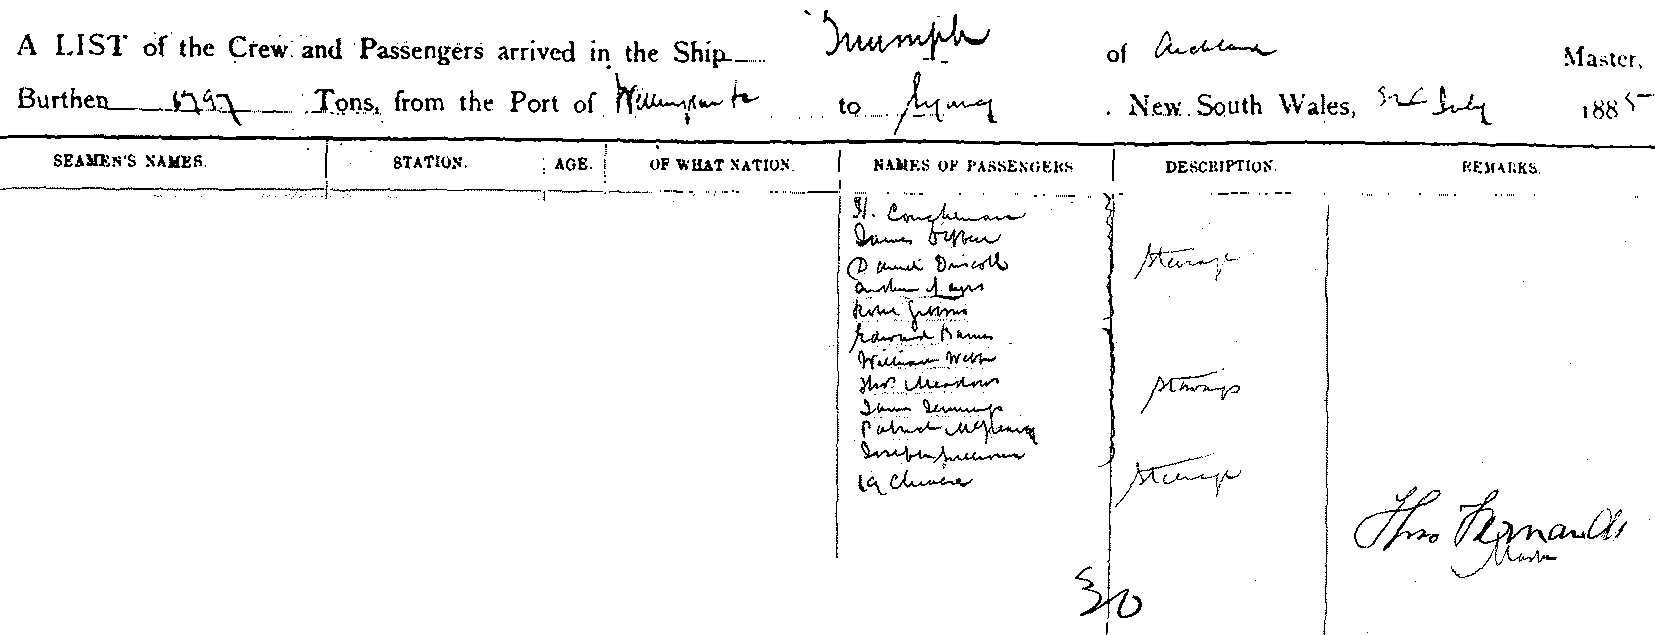 A LIST of the Crew and Passengers arrived in the Ship Triumph of Auckland Master,
Burthen 1797 Tons, from the Port of Wellington to Sydney New South Wales, 3rd July 1885
SEAMEN'S NAMES. STATION. AGE. OF WHAT NATION. NAMES OF PASSENGERS DESCRIPTION. REMARKS.
H.
James
Daniel Driscoll Steerage
Robt
Edward Barnes
William Webb
Thos Meadows Steerage
James Jennings
Patrick
Joseph
19 Chinese Steerage
Thos Fernandes
Master
30